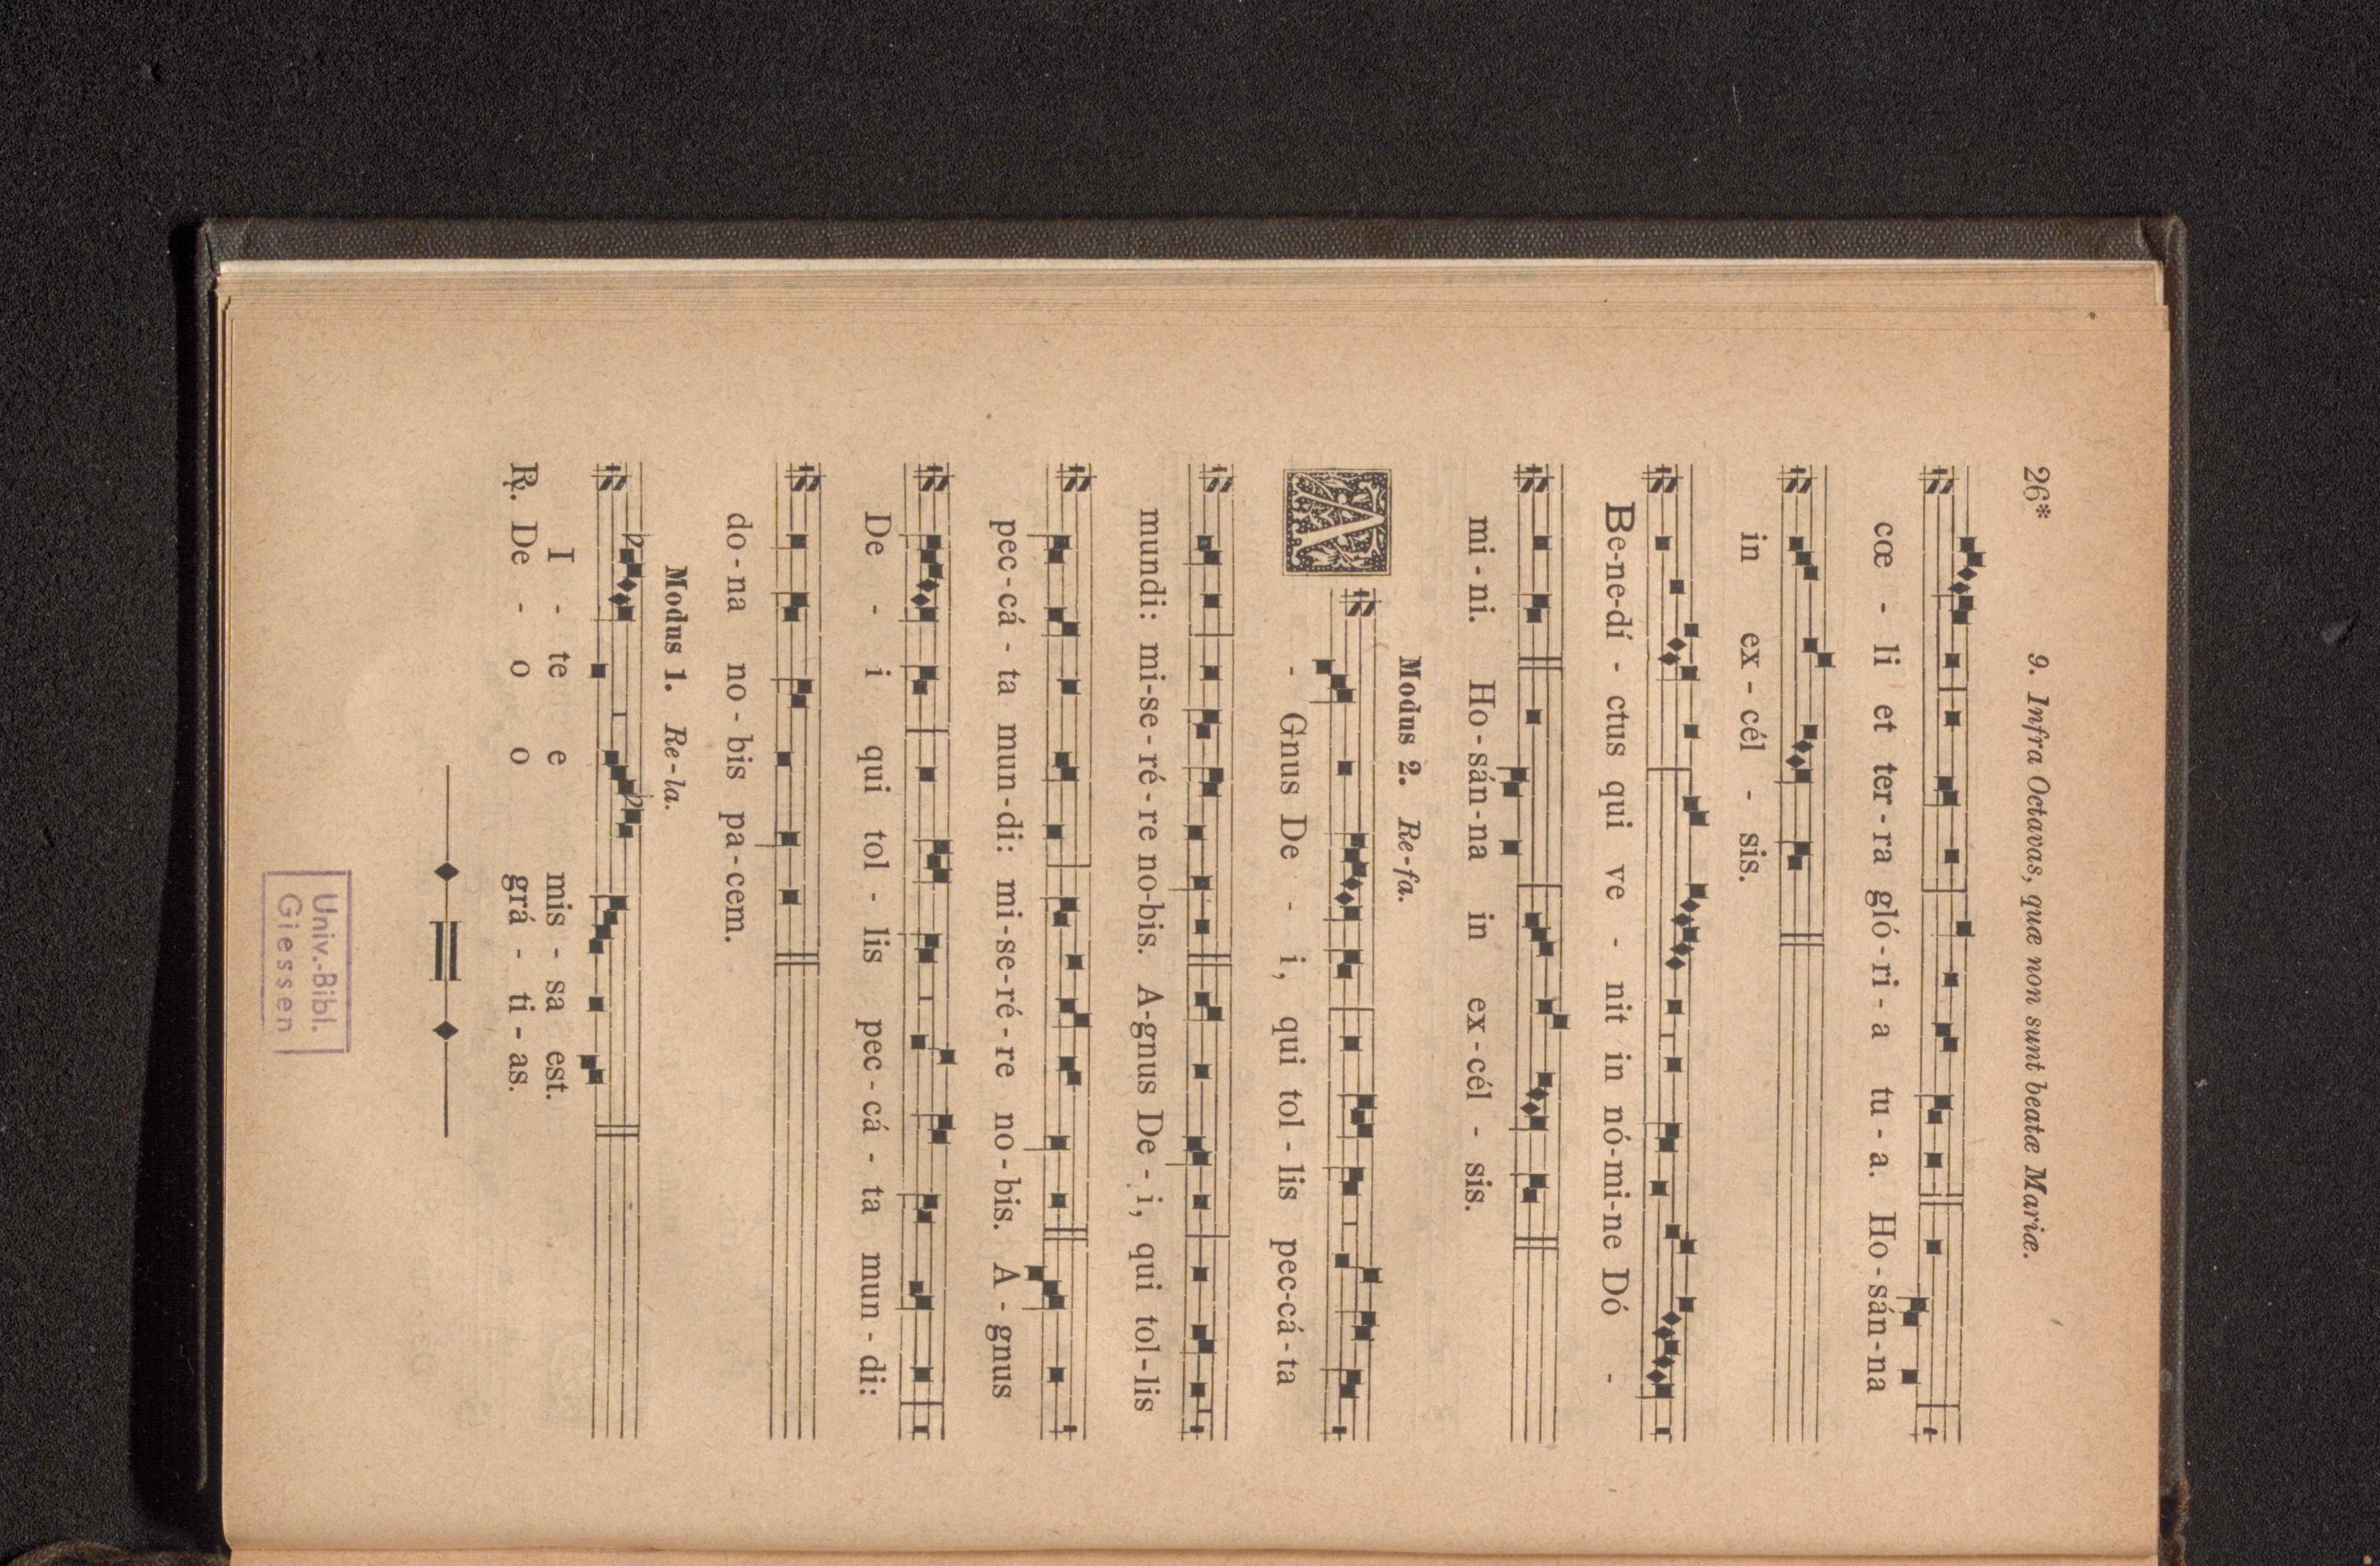 26* 9. Infra Octavas, quæ non sunt beatæ Mariæ.
cœ - li et ter - ra gló - ri - a tu - a. Ho - sán - na
in ex - cél - sis.
Be-ne-dí - ctus qui ve - nit in nó-mi-ne Dó -
mi - ni. Ho - sán - na in ex - cél - sis.
Modus 2. Re-fa.
A - Gnus De - i, qui tol - lis pec-cá - ta
mundi: mi-se - ré - re no-bis. A-gnus De - i, qui tol-lis
pec - cá - ta mun - di: mi - se-ré - re no - bis. A - gnus
De - i qui tol - lis pec - cá - ta mun - di:
do - na no - bis pa - cem.
Modus 1. Re-la.
I - te e mis - sa est.
℟. De - o o grá - ti - as.
Univ.-Bibl.
Giessen